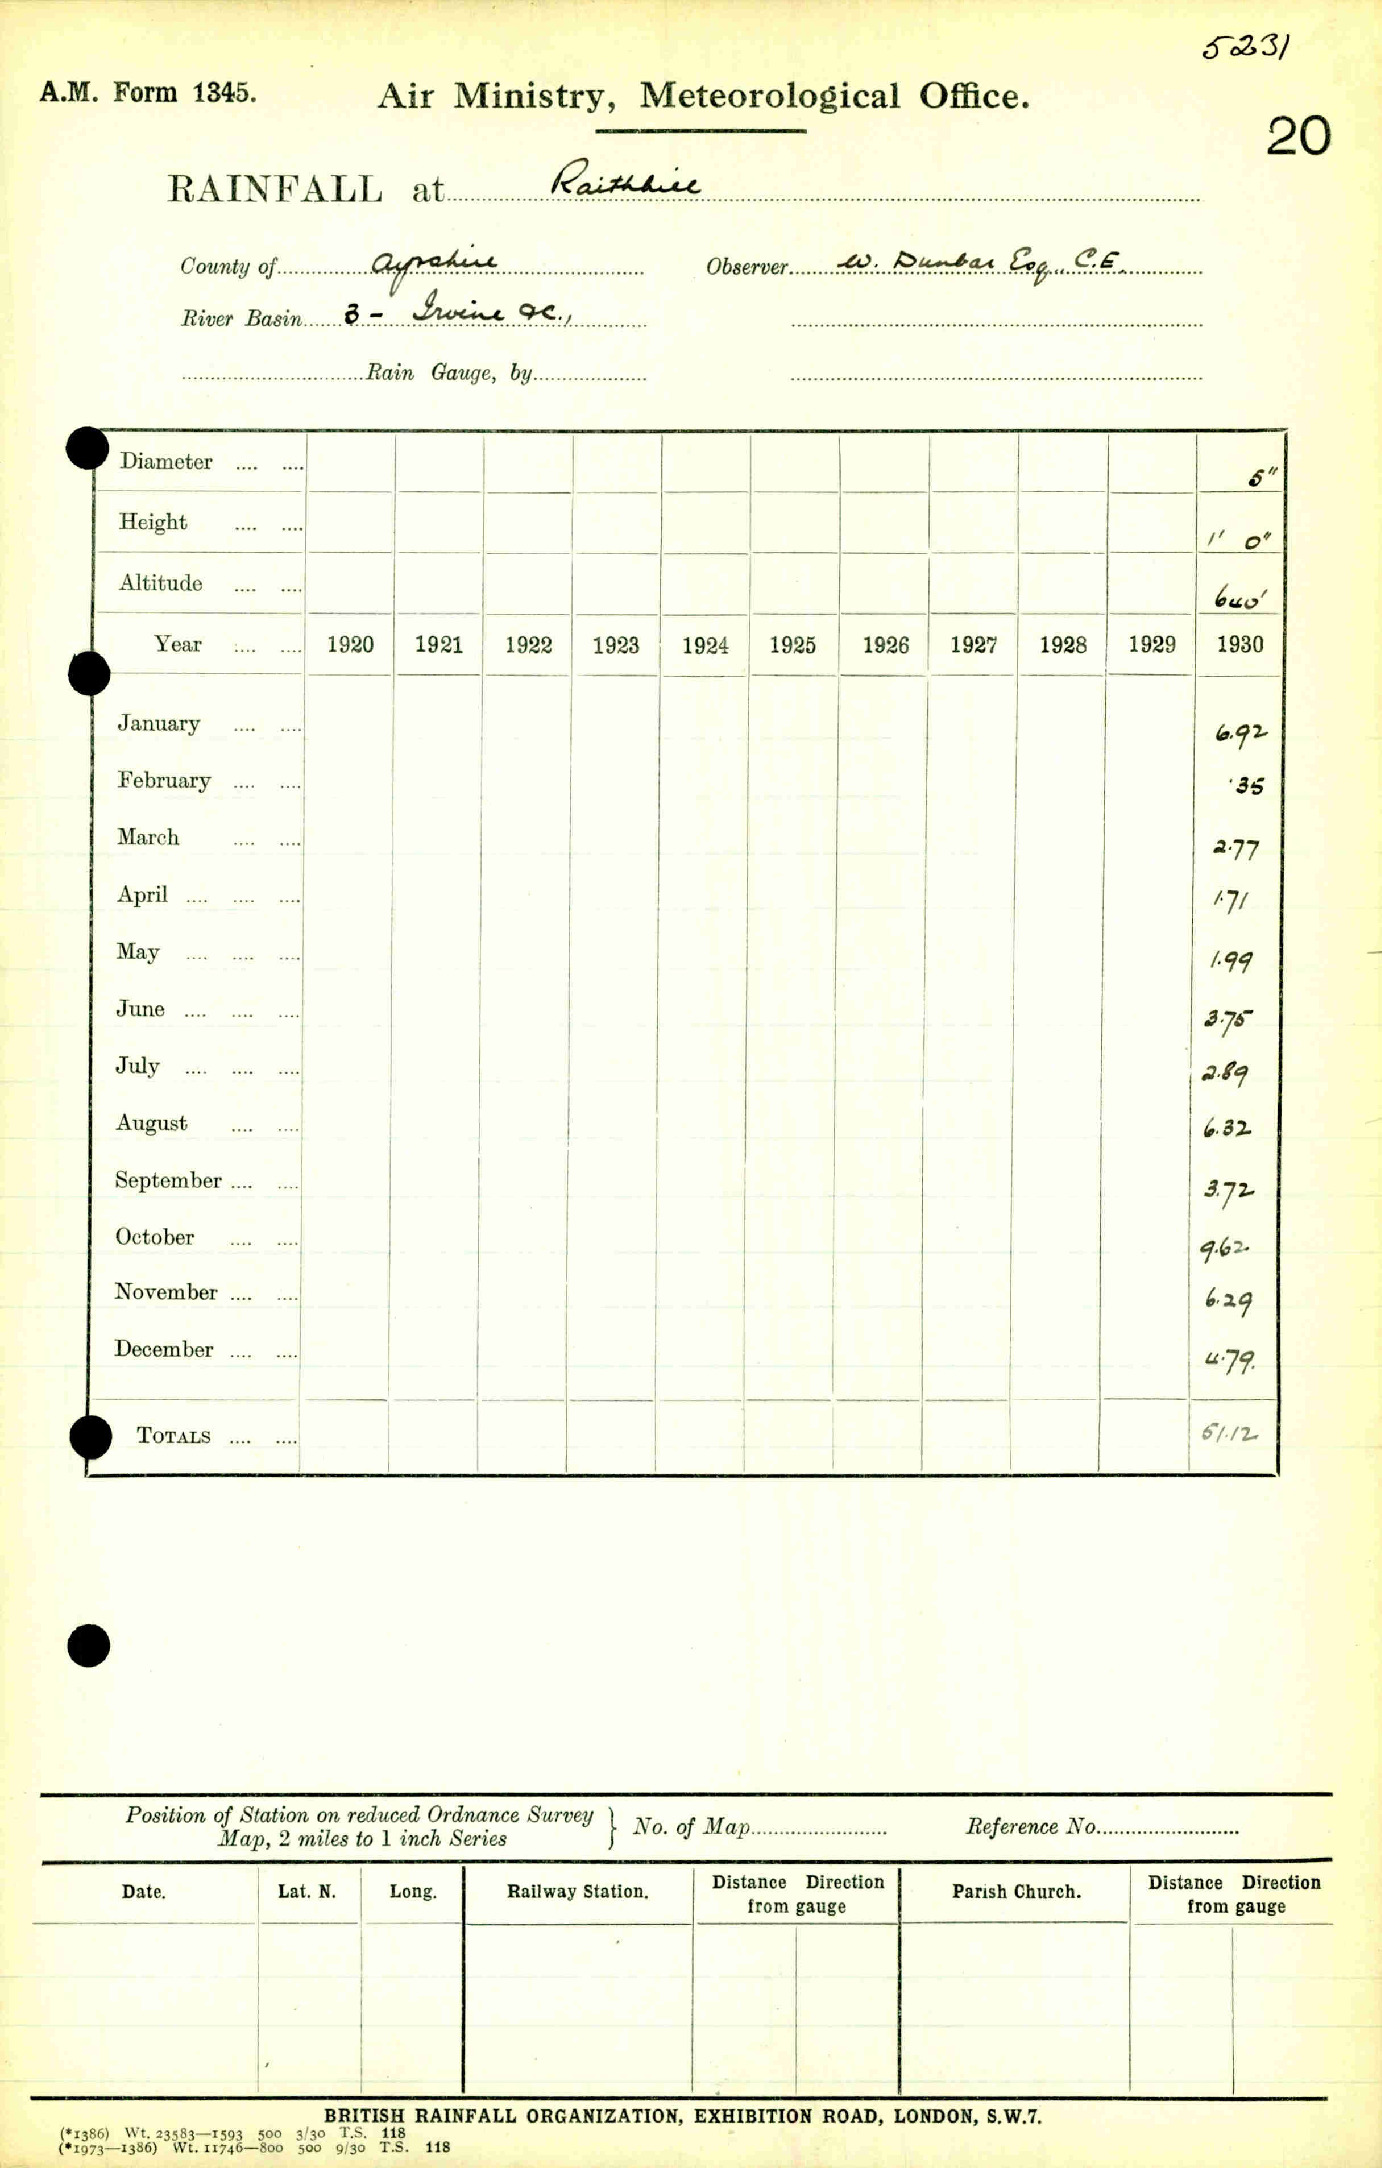 5231
A.M. Form 1345. Air Ministry, Meteorological Office.
20
RAINFALL at Raithhill
County of Ayrshire Observer W. Dunbar Esq., C.E.
River Basin 3 - Irvine &c.,
Rain Gauge, by
Diameter .... .... 5"
Height .... .... 1' 0"
Altitude .... .... 640'
Year .... .... 1920 1921 1922 1923 1924 1925 1926 1927 1928 1929 1930
January .... .... 6.92
February .... .... .35
March .... .... 2.77
April .... .... .... 1.71
May .... .... .... 1.99
June .... .... .... 3.75
July .... .... .... 2.89
August .... .... 6.32
September .... .... 3.72
October .... .... 9.62
November .... .... 6.29
December .... .... 4.79
TOTALS .... .... 51.12
Position of Station on reduced Ordnance Survey
Map, 2 miles to 1 inch Series } No. of Map Reference No.
Date. Lat. N. Long. Railway Station. Distance Direction from gauge Parish Church. Distance Direction from gauge
BRITISH RAINFALL ORGANIZATION, EXHIBITION ROAD, LONDON, S.W.7.
(*1386) Wt. 23583—1593 500 3/30 T.S. 118
(*1973—1386) Wt. 11746—800 500 9/30 T.S. 118